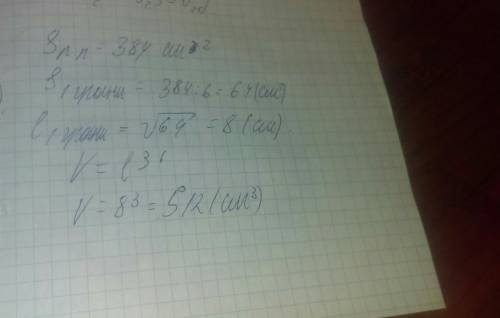 Sп.п = 384 см²
S1 грани = 384:6 = 64(см²)
l1 грани = √64 = 8 (см)
V = l³
V = 8³ = 512 (см³)